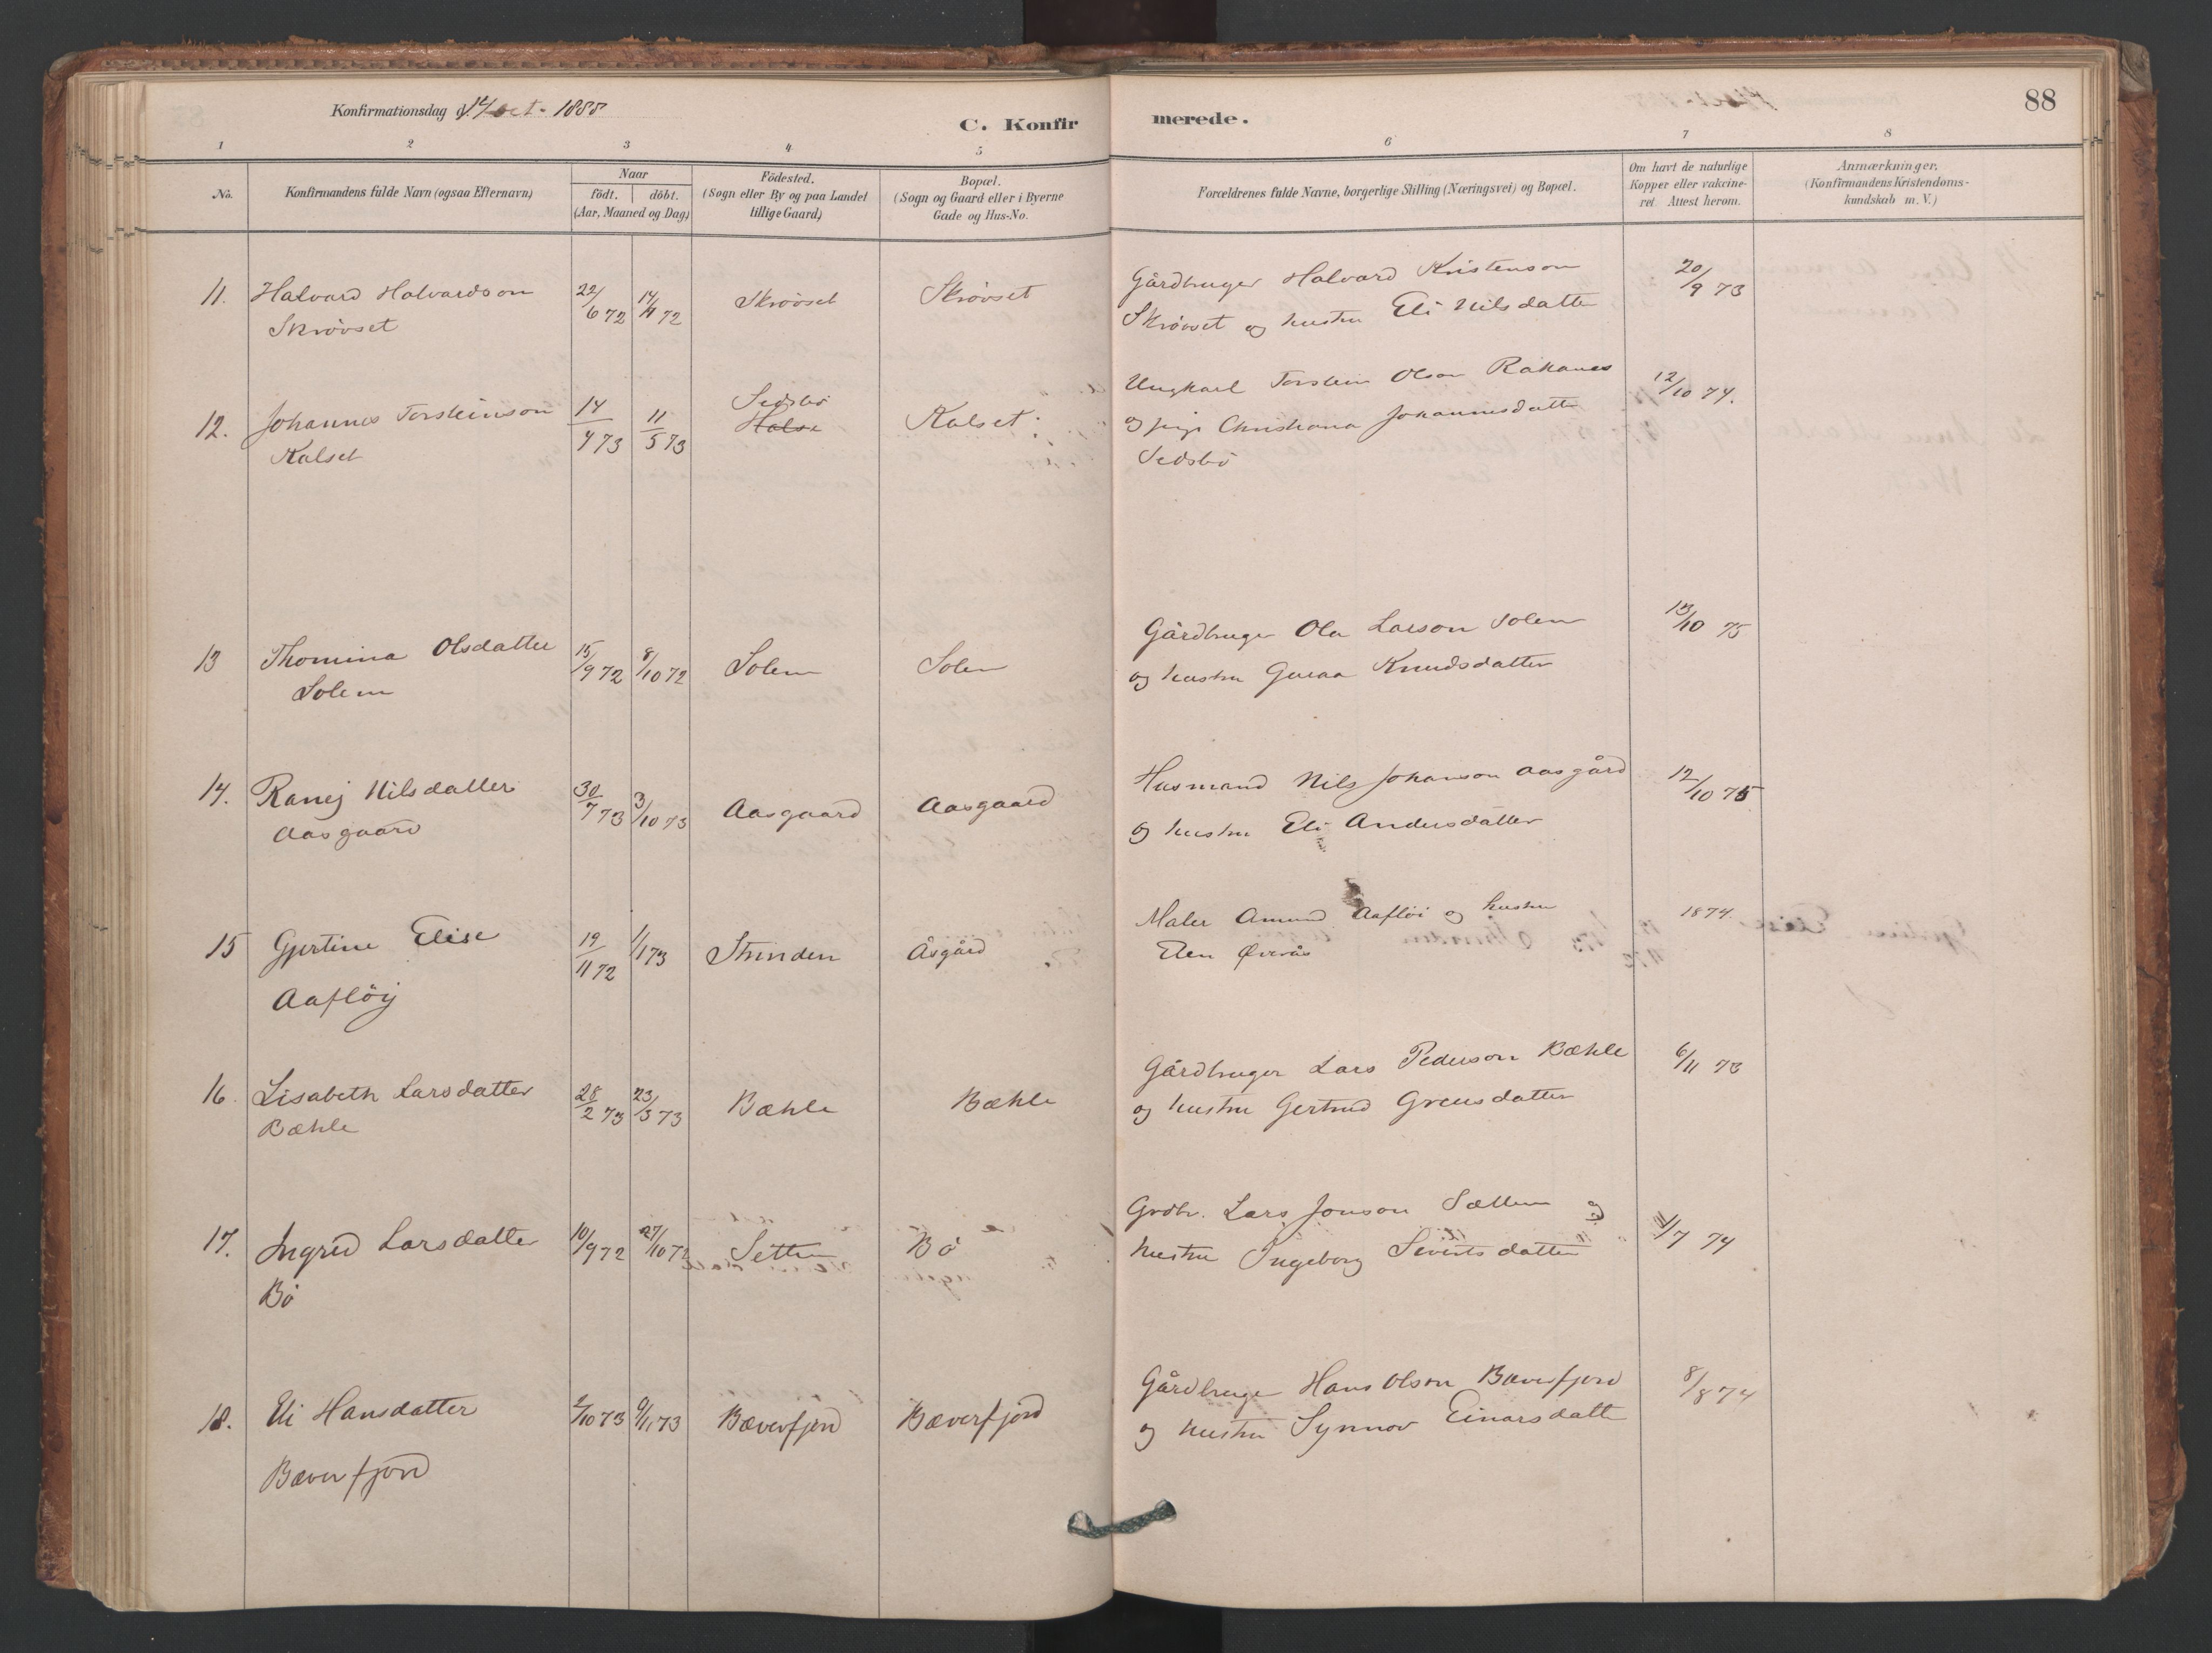 Konfirmationsdag d. 14 oct. 1888
C. Konfirmerede.
88
1 2 3 4 5 6 7 8
No.
Konfirmandens fulde Navn (ogsaa Efternavn)
Naar
födt. döbt.
(Aar, Maaned og Dag)
Födested.
(Sogn eller By og paa Landet
tillige Gaard)
Bopæl.
(Sogn og Gaard eller i Byerne
Gade og Hus-No.
Forældrenes fulde Navne, borgerlige Stilling (Næringsvei) og Bopæl.
Om havt de naturlige
Kopper eller vakcine-
ret. Attest herom.
Anmærkninger,
(Konfirmandens Kristendoms-
kundskab m. V.)
11. Halvard Halvardson 22/6 72 14/7 72 Skrövset Skrövset Gårdbruger Halvard Kristenson 20/9 73
Skrövset Skrövset og hustru Eli Nilsdatter
12. Johannes Torsteinson 14/4 73 11/5 73 Sedsbö Halse Kalset Ungkarl Torstein Olson Rakanes 12/10 74.
Kalset og pige Christiana Johannesdatter
Sedsbö
13 Thomina Olsdatter 15/9 72 8/10 72 Solem Solem Gårdbruger Ola Larson Solem 13/10 75
Solem og hustru Guraa Knudsdatter
14. Ranej Nilsdatter 30/7 73 3/10 73 Aasgaard Aasgaard Husmand Nils Johanson Aasgård 12/10 75
Aasgaard og hustru Eli Andersdatter
15 Gjertine Elise 19/11 72 1/1 73 Strinden Åsgård Maler Amund Aafløi og hustru 1874.
Aafløij Elen Øverås
16. Lisabeth Larsdatter 28/2 73 23/3 73 Bæhle Bæhle Gårdbruger Lars Pederson Bæhle 6/11 73
Bæhle og hustru Gertrud Greusdatter
17. Ingrid Larsdatter 10/9 72 27/10 72 Settem Bö Grdbr. Lars Jonson Sættem og 11/7 74
Bö hustru Ingeborg Sivertsdatter
18. Eli Hansdatter 2/10 73 9/11 73 Bæverfjord Bæverfjord Gårdbruger Hans Olson Bæverfjord 8/8 74
Bæverfjord og hustru Synnov Einarsdatter